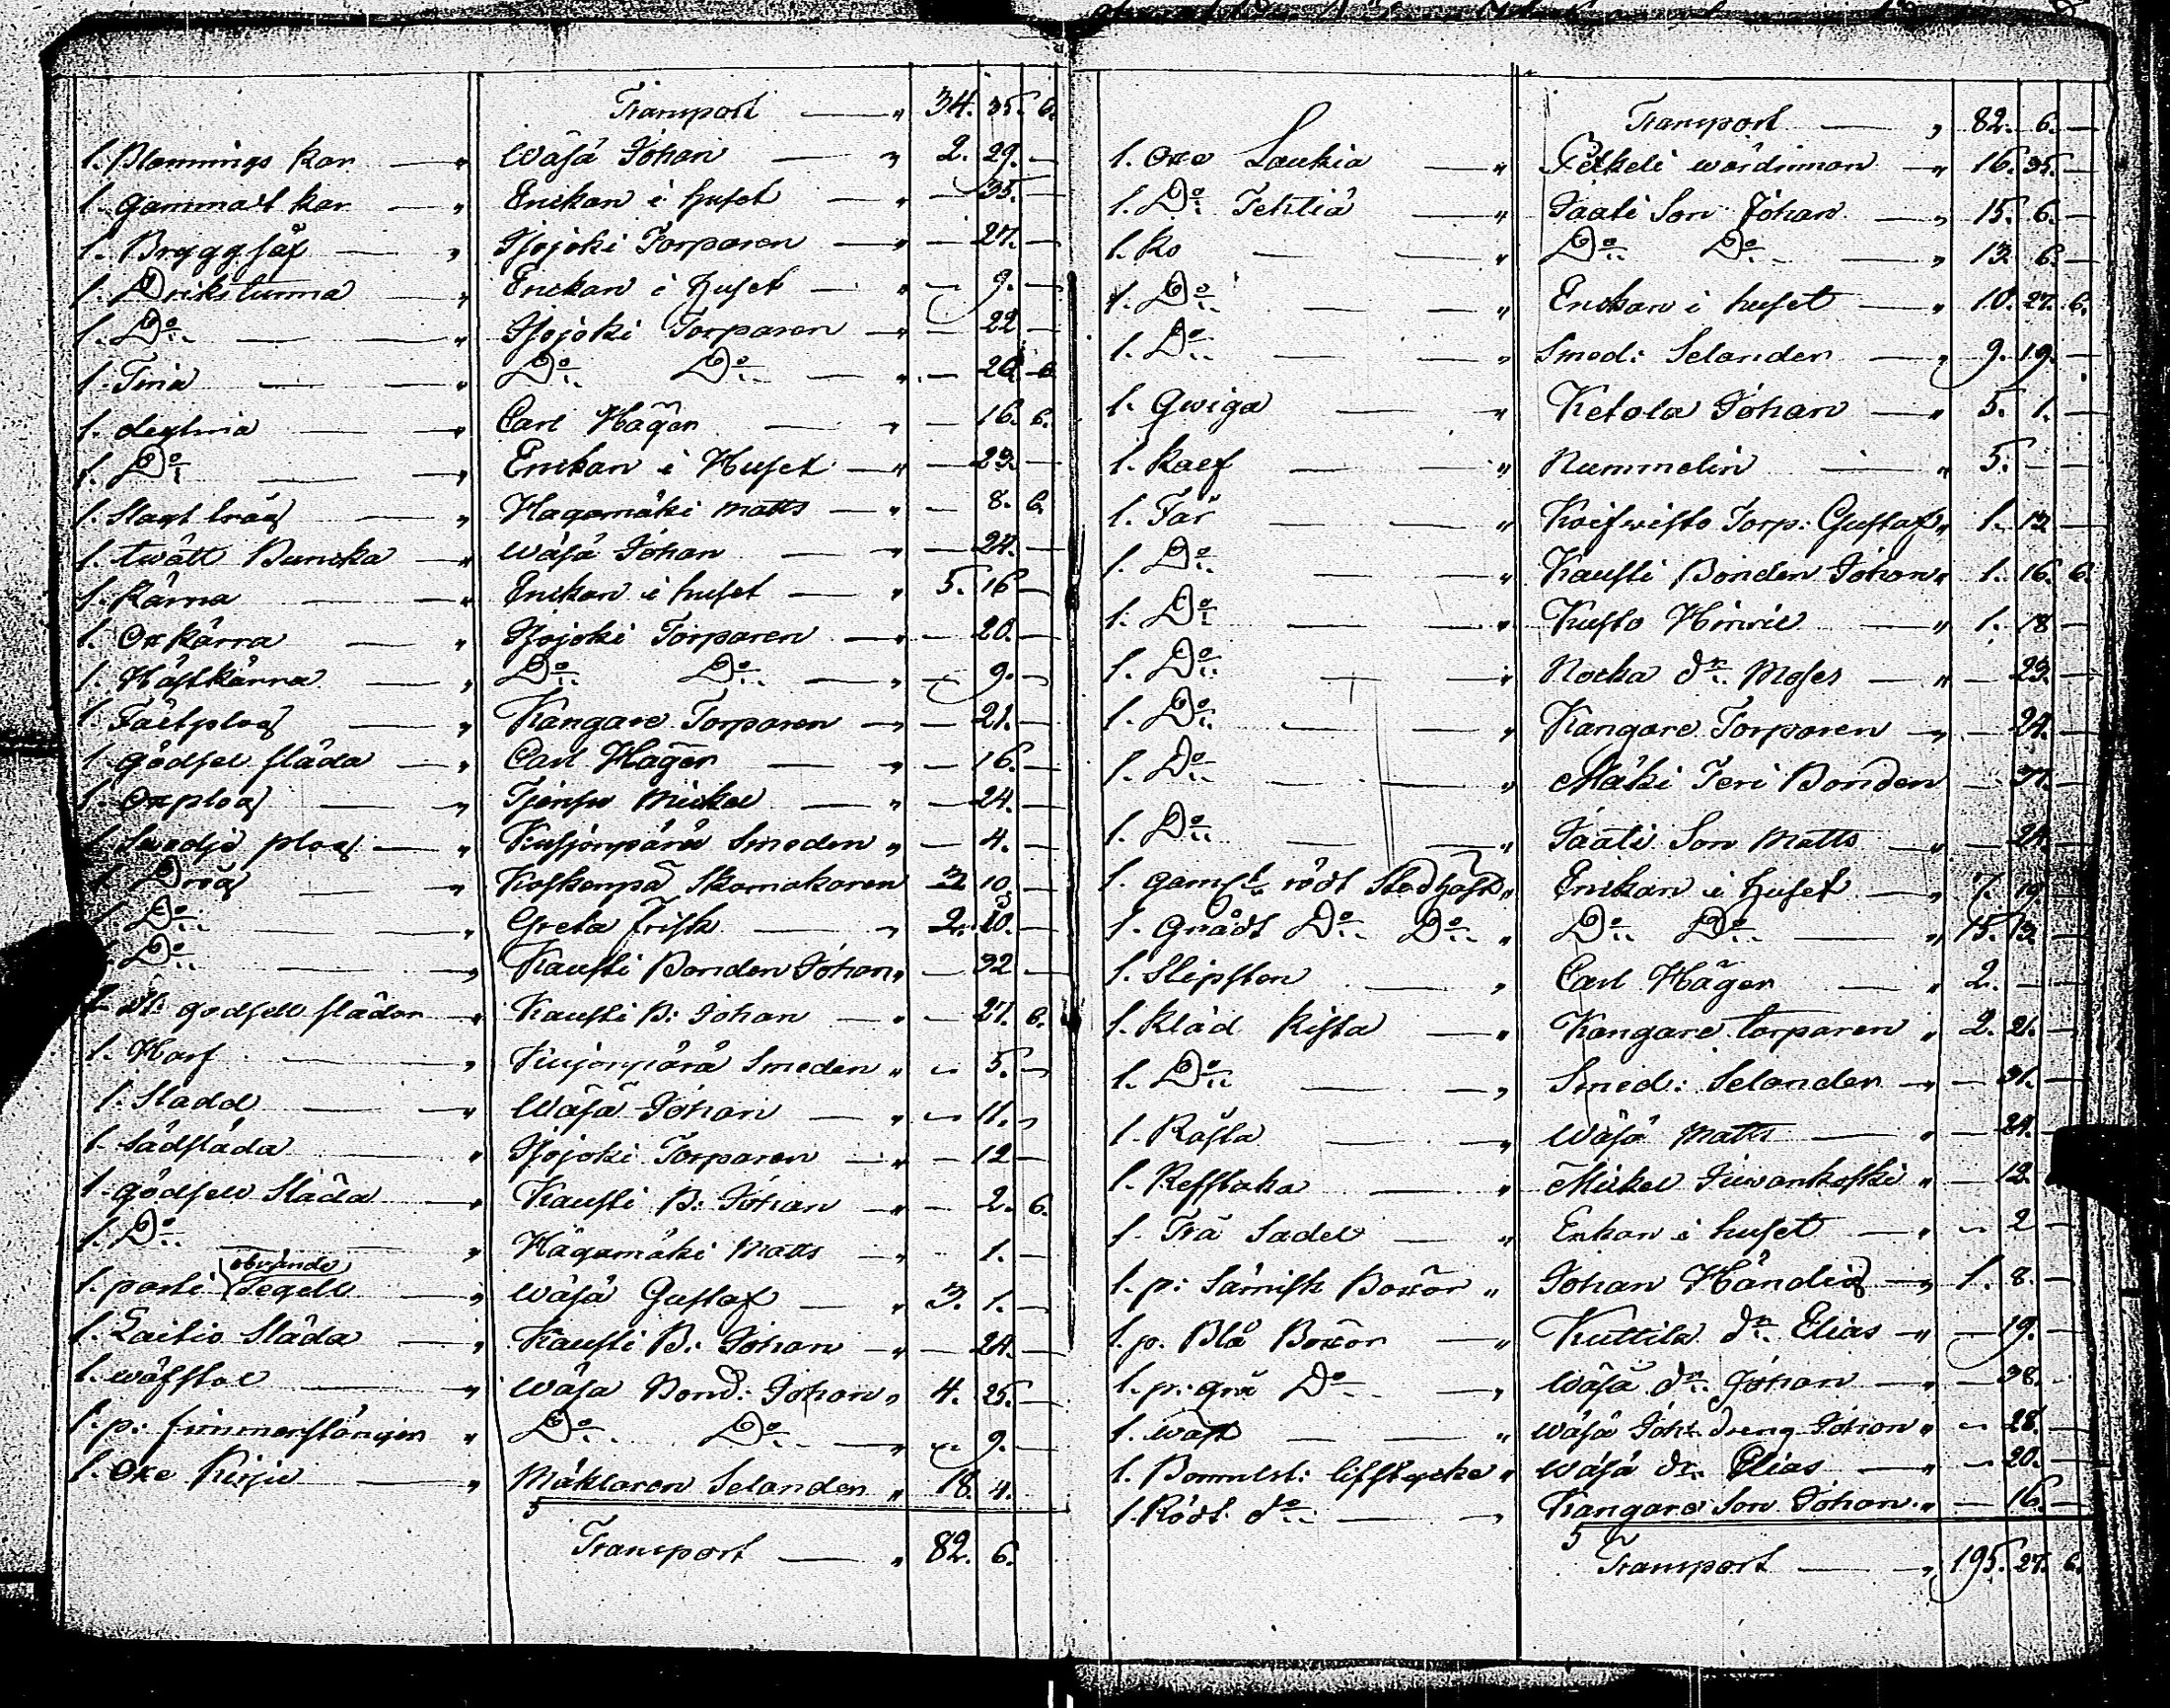 Transport — " 34. 35. 6.
1. Blannings kar — " Wäsä Johan — " 2. 29. —
1. gammalt kar — " Enckan i huset — " — 35. —
1. Bryggsåf — " Isojoki Torparen — " — 27. —
1. Drikstunna — " Enckan i huset — " — 9. —
1. Do — " Isojoki Torparen — " — 22 —
1. Tina — " Do Do — " — 20. 6
1. degtina — " Carl Häger — " — 16. 6.
1. Do — " Enckan i Huset — " — 23. —
1. Slagt tråg — " Hagamäki Matts — " — 8. 6.
1. twätt Buncka — " Wäsä Johan — " — 24. —
1. Kärra — " Enckan i huset — " 5. 16 —
1. Oxkärra — " Isojoki Torparen — " — 20. —
1. Hästkärra — " Do Do — " — 9. —
1. Fältplog — " Kangare Torparen — " — 21. —
1. gödsel släda — " Carl Häger — " — 16. —
1. Oxplog — " Mickel — " — 24. —
1. Swedje plog — " Kusjonpärä Smeden " — 4. —
1. Drög — " Koskenpä Skomakaren 3 10.
1. Do — " Greta Frisk — " 2. 10. —
1. Do — " Kausti Bonden Johan " — 32 —
1. st: gödsell slädar " Kausti B: Johan — " — 27. 6.
1. Harf — " Kusjonpärä Smeden " — 5. —
1. Sladd — " Wäsä Johan — " — 11. —
1. Sädsläda " Isojoki Torparen — " — 12 —
1. gödsell Släda — " Kausti B: Johan — " — 2. 6.
1. Do — " Hagamäki Matts — " 1. —
1. parti obrände Tegell — " Wäsä Gustaf — " 3. 1. —
1. Laitio Släda — " Kausti B: Johan — " — 24. —
1. wäfstol — " Wäsä Bond: Johan " 4. 25. —
1. p: fimmerstänger " Do Do — " — 9. —
1. Oxe Kirju — " Mäklaren Selander " 18. 4.
5 Transport — " 82. 6.
Transport — " 82. 6. —
1. Oxe Laukia — " Pitkeli wärdinnan — " 16. 35. —
1. Do Tehtiä — " Jaati Son Johan — " 15. 6. —
1. Ko — " Do Do — " 13. 6. —
1. Do — " Enckan i huset — " 10. 27. 6.
1. Do — " Smed: Selander — " 9. 19. —
1. Qwiga — " Ketola Johan — " 5. 1. —
1. Kalf — " Nummelin — " 5. — —
1. Får — " Koifwisto Torp: Gustaf " 1. 12 —
1. Do — " Kausti Bonden Johan " 1. 16. 6.
1. Do — " Kusto Hinric — " 1. 18 —
1. Do — " Nocka dn Moses — " — 23. —
1. Do — " Kangare Torparen — " — 24. —
1. Do — " Mäki Teri Bonden — 31. —
1. Do — " Jaati Son Matts — " — 24. —
1. gamlt rödt " Enckan i huset — " 7. 19 —
1. Grådt Do Do " Do Do — " 15. 13. —
1. Slipsten — " Carl Häger — " 2. — —
1. Kläd Kista — " Kangare torparen " 2. 21. —
1. Do — " Smed: Selander — " — 31. —
1. Kåsla — " Wäsä Matts — " — 24. —
1. Reffstaka — " Mickel Juwankoski " — 12. —
1. Trä Sadel — " Enkan i huset — " — 2 —
1. p: Sämisk Boxor " Johan Händig — " 1. 8. —
1. p. Blå Boxor — " Kuttila dn Elias — " — 19. —
1. p: grå Do — " Wäsä dn Johan — " — 38. —
1. wäst — " Wäsä Joh: dreng Johan " — 28. —
1. Bomulst: lifstycke " Wäsä dn Elias — " — 20. —
1. Rödt do — " Kangare Son Johan " — 16. —
5 Transport — " 195. 27. 6.